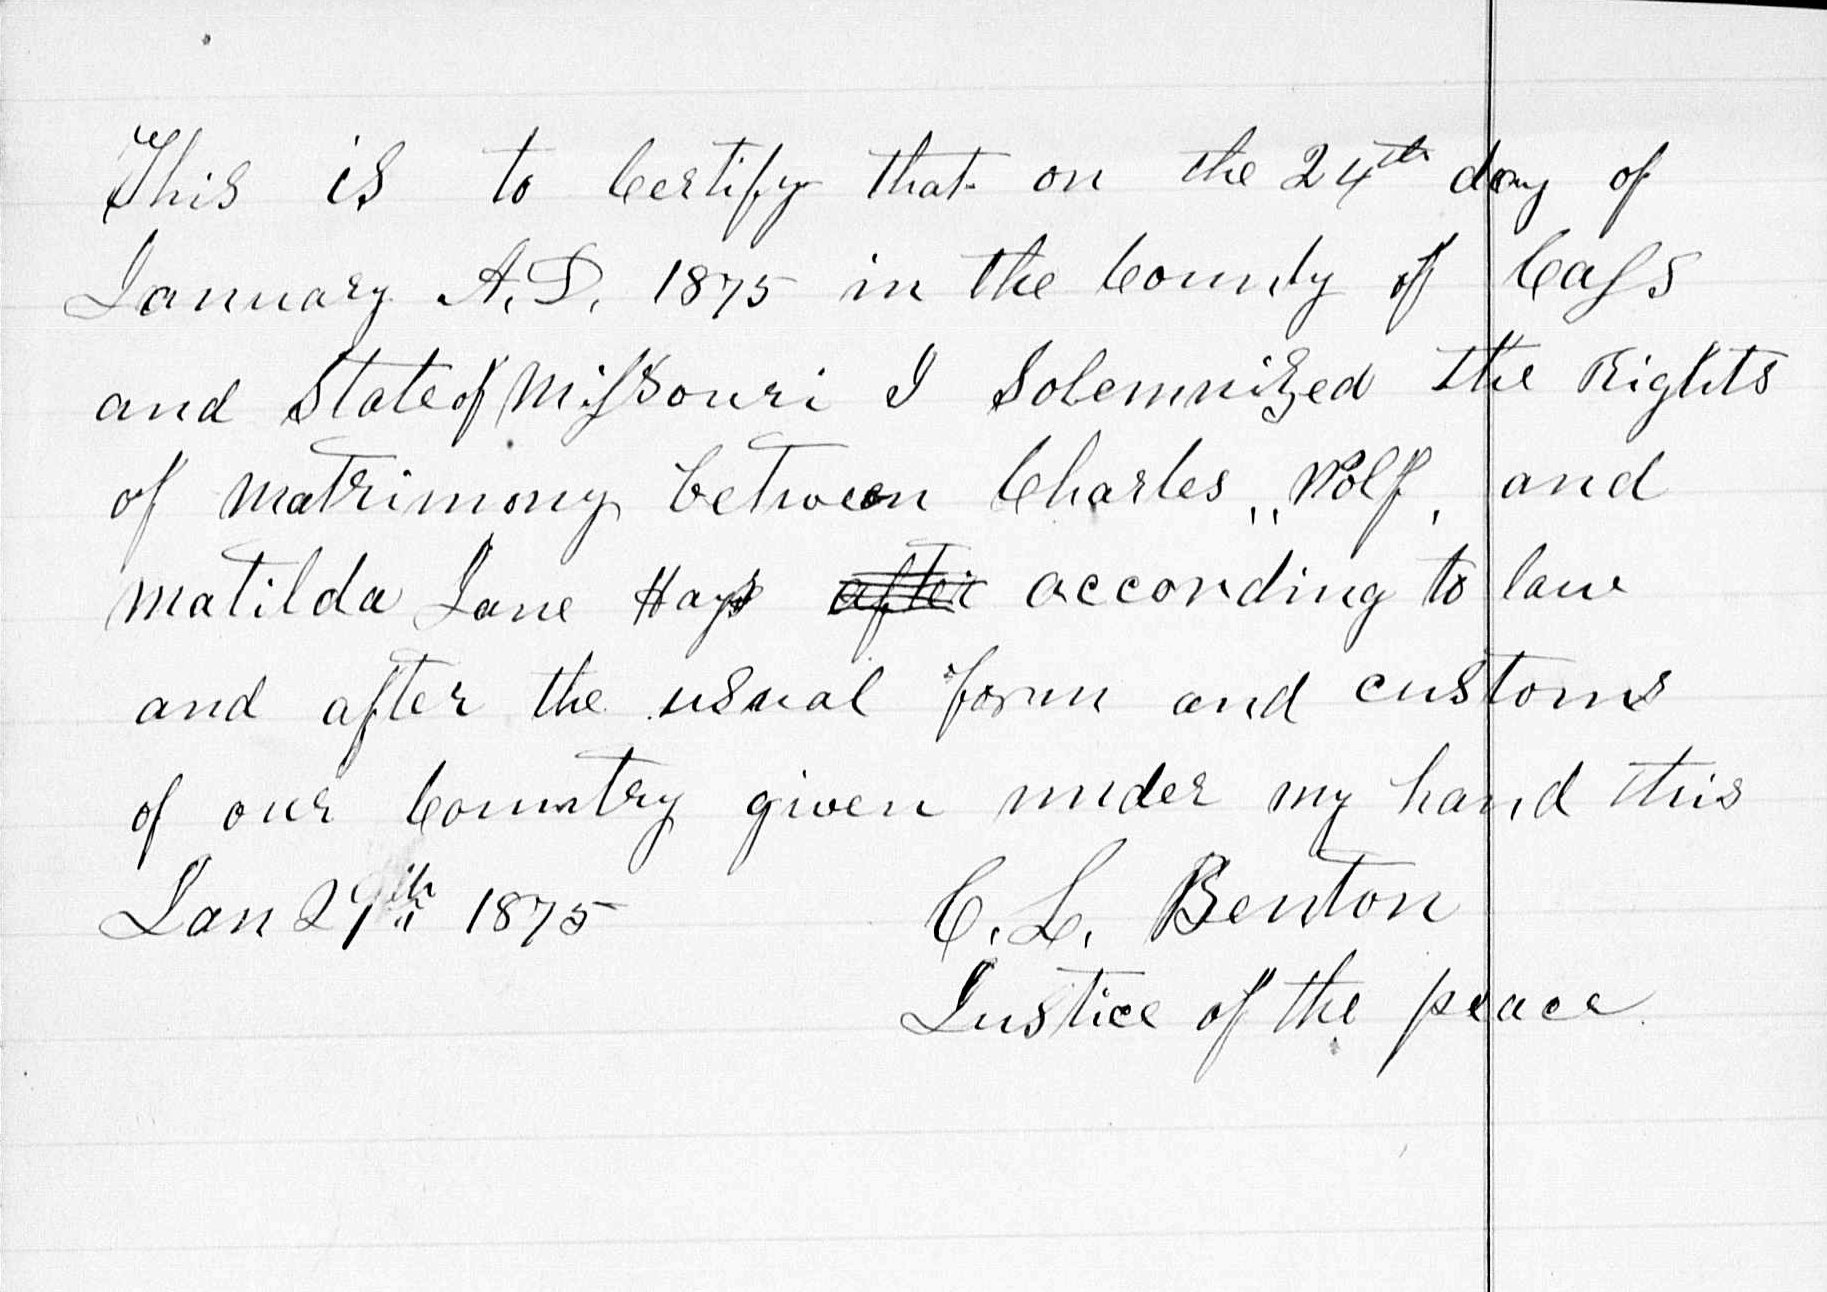 This is to Certify that on the 24th day of
January A.D. 1875 in the County of Cass
and State of Missouri I Solemnized the Rights
of matrimony between Charles,, Wolf, and
Matilda Jane Hays after according to law
and after the usual form and customs
of our Country given under my hand this
Jan 27th 1875 C. L. Benton
Justice of the peace